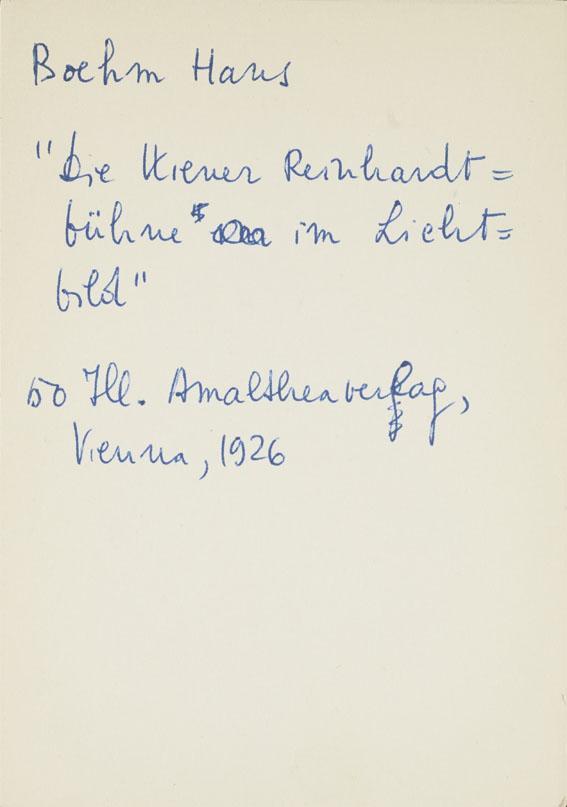 Boehm Hans
"Die Wiener Reinhardt=
bühne im Licht=
bild"
50 Ill. Amaltheaverlag,
Vienna, 1926